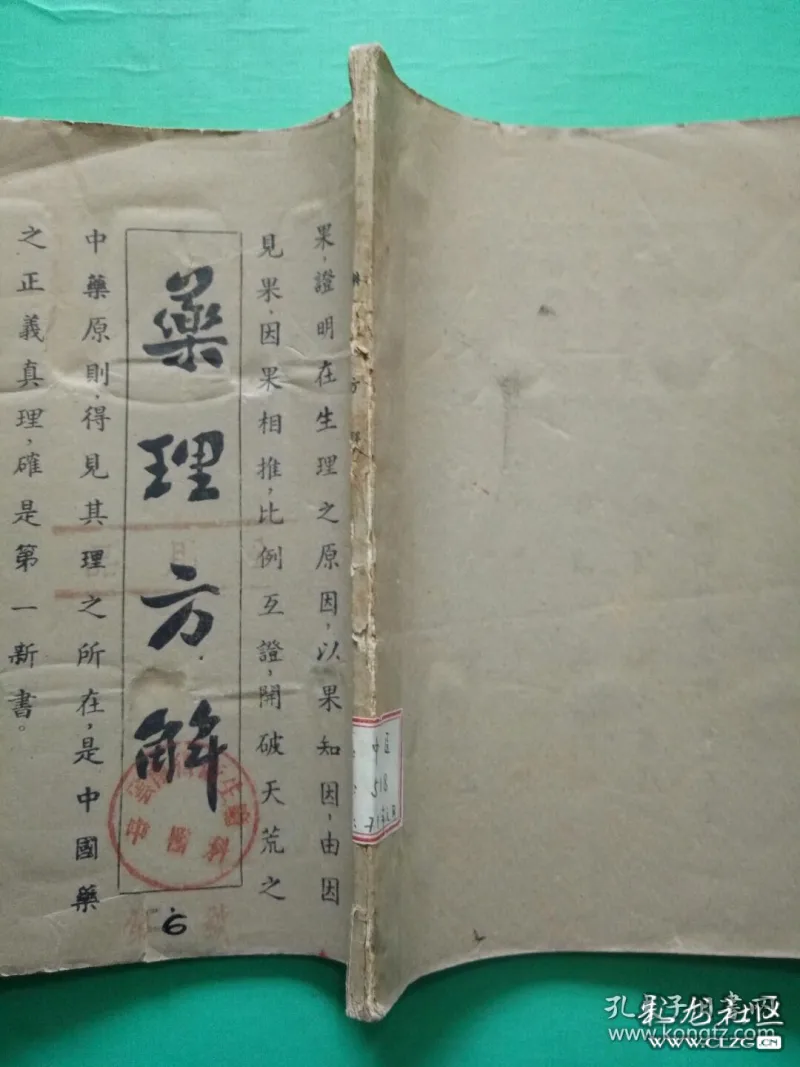 果，證明在生理之原因，以果知因，由因
見果，因果相推，比例互證，開破天荒之
藥理方解
中藥原則，得見其理之所在，是中國藥
之正義真理，確是第一新書。
6
方解
中医
518
www.kongfz.com
札龙社区
WWW.CLZG.CN